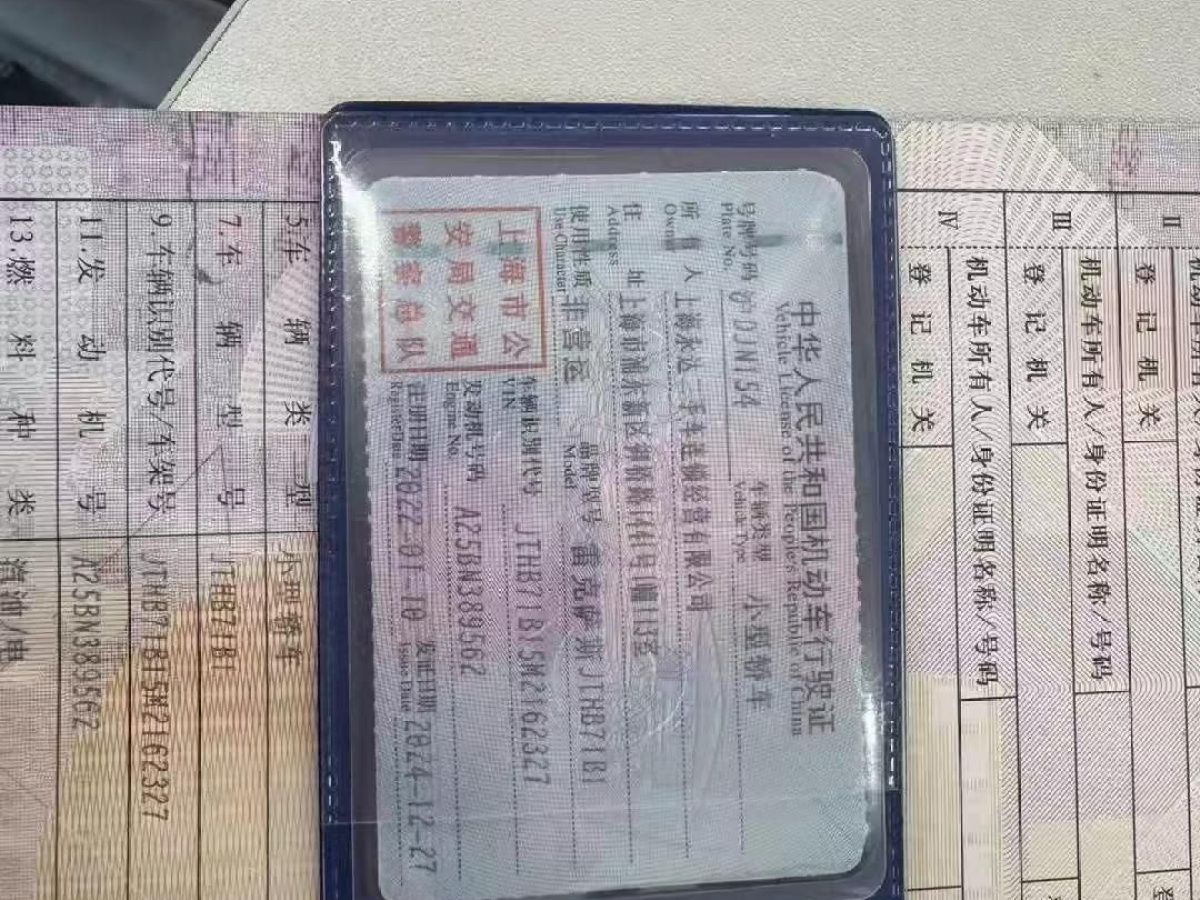 中华人民共和国机动车行驶证
Vehicle License of the People's Republic of China
号牌号码 沪DJN154 车辆类型 小型轿车
Plate No. Vehicle Type
所有人 上海永达二手车连锁经营有限公司
Owner
住址 上海市浦东新区
Address
使用性质 非营运 品牌型号 雷克萨斯JTHB71B1
Use Character Model
上海市公
安局交通
警察总队
车辆识别代号 JTHB71B15M2162327
VIN
发动机号码 A25BN389562
Engine No.
注册日期 2022-01-10 发证日期 2024-12-27
Register Date Issue Date
5.车辆类型 小型轿车
7.车辆型号 JTHB71B1
9.车辆识别代号/车架号 JTHB71B15M2162327
11.发动机号 A25BN389562
13.燃料种类 汽油/电
II
登记机关
机动车所有人/身份证明名称/号码
III
登记机关
机动车所有人/身份证明名称/号码
IV
登记机关